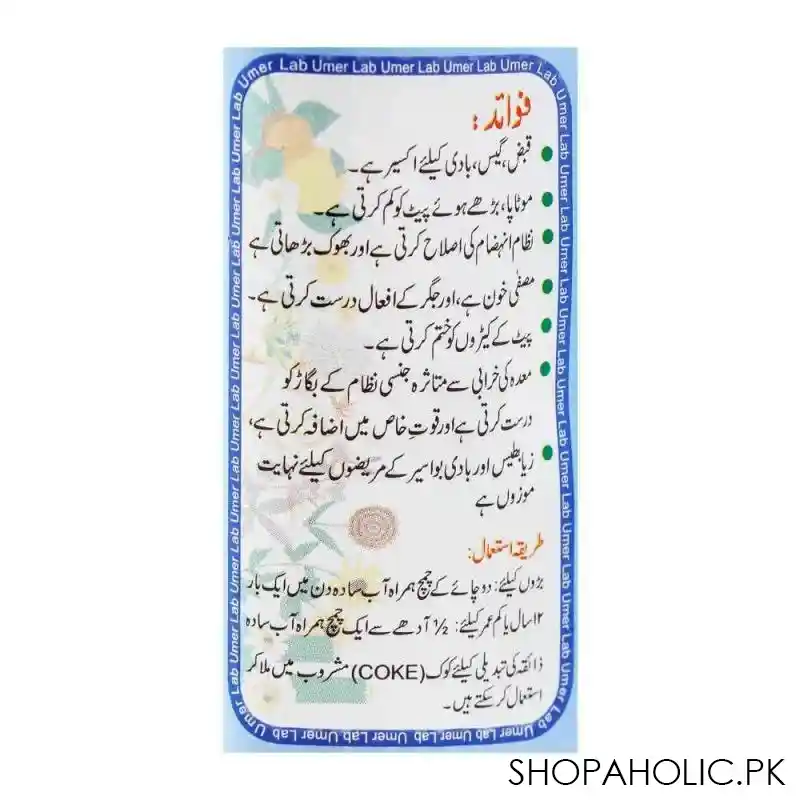 Umer Lab Umer Lab Umer Lab Umer Lab Umer Lab Umer Lab
فوائد:
قبض، گیس، بادی کیلئے اکسیر ہے۔
موٹاپا، بڑھے ہوئے پیٹ کو کم کرتی ہے۔
نظام انہضام کی اصلاح کرتی ہے اور بھوک بڑھاتی ہے
مصفٰی خون ہے، اور جگر کے افعال درست کرتی ہے۔
پیٹ کے کیڑوں کو ختم کرتی ہے۔
معدہ کی خرابی سے متاثرہ جنسی نظام کے بگاڑ کو
درست کرتی ہے اور قوتِ خاص میں اضافہ کرتی ہے،
زیابطیس اور بادی بواسیر کے مریضوں کیلئے نہایت
موزوں ہے
طریقہ استعمال:
بڑوں کیلئے: دو چائے کے چمچ ہمراہ آب سادہ دن میں ایک بار
۱۲ سال یا کم عمر کیلئے: ½ آدھے سے ایک چمچ ہمراہ آب سادہ
ذائقہ کی تبدیلی کیلئے کوک (COKE) مشروب میں ملا کر
استعمال کر سکتے ہیں۔
SHOPAHOLIC.PK